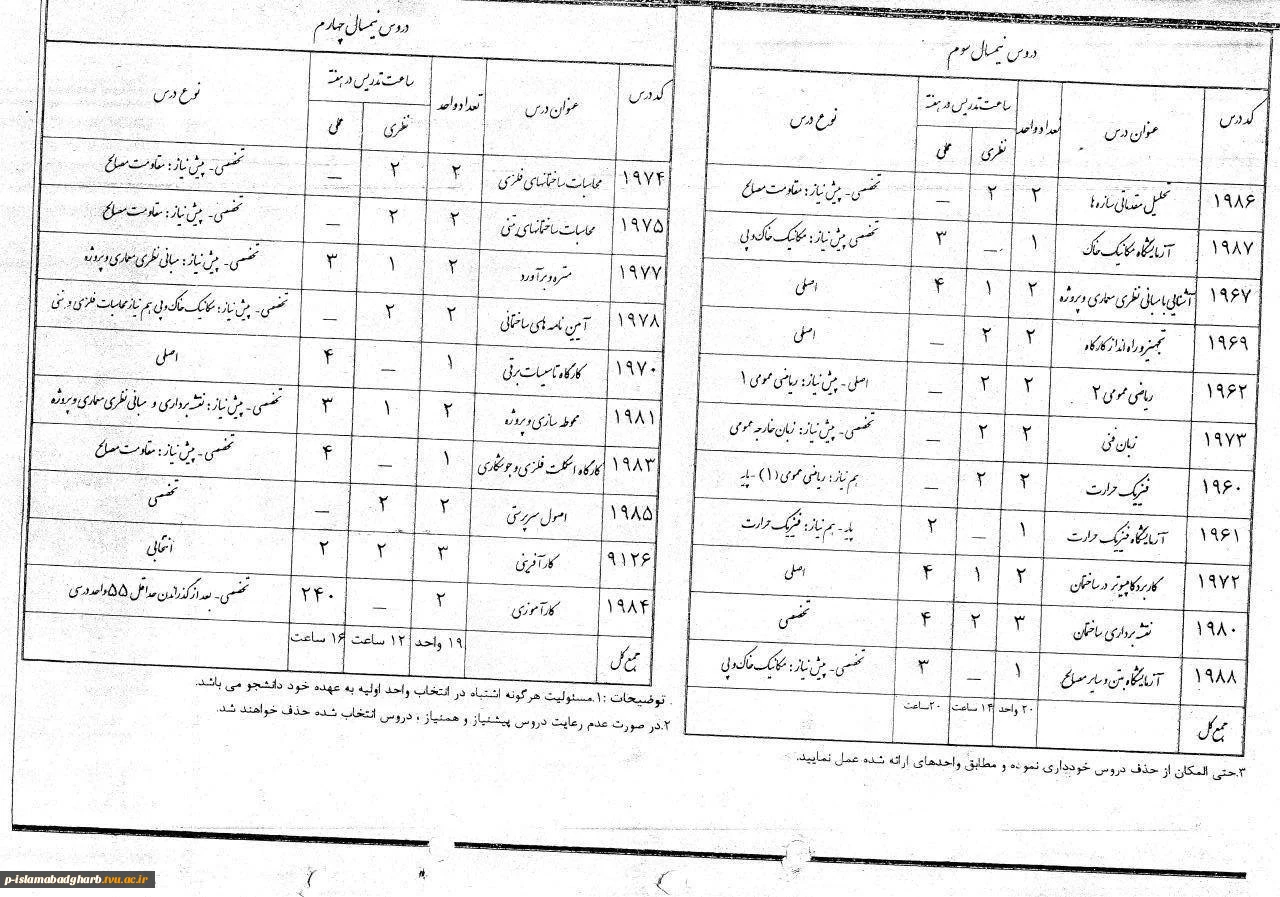 دروس نیمسال سوم
کد درس عنوان درس تعداد واحد ساعت تدریس در هفته نوع درس
نظری عملی
۱۹۸۶ تحلیل مقدماتی سازه ها ۲ ۲ — تخصصی - پیش نیاز: مقاومت مصالح
۱۹۸۷ آزمایشگاه مکانیک خاک ۱ — ۳ تخصصی پیش نیاز: مکانیک خاک و پی
۱۹۶۷ آشنایی با مبانی نظری معماری و پروژه ۲ ۱ ۴ اصلی
۱۹۶۹ تجهیز و راه انداز کارگاه ۲ ۲ — اصلی
۱۹۶۲ ریاضی عمومی ۲ ۲ ۲ — اصلی - پیش نیاز: ریاضی عمومی ۱
۱۹۷۳ زبان فنی ۲ ۲ — تخصصی - پیش نیاز: زبان خارجه عمومی
۱۹۶۰ فیزیک حرارت ۲ ۲ — هم نیاز: ریاضی عمومی (۱) - پایه
۱۹۶۱ آزمایشگاه فیزیک حرارت ۱ — ۲ پایه - هم نیاز: فیزیک حرارت
۱۹۷۲ کاربرد کامپیوتر در ساختمان ۲ ۱ ۴ اصلی
۱۹۸۰ نقشه برداری ساختمان ۳ ۲ ۴ تخصصی
۱۹۸۸ آزمایشگاه بتن و سایر مصالح ۱ — ۳ تخصصی - پیش نیاز: مکانیک خاک و پی
جمع کل ۲۰ واحد ۱۴ ساعت ۲۰ساعت
۳.حتی المکان از حذف دروس خودداری نموده و مطابق واحدهای ارائه شده عمل نمایید.
دروس نیمسال چهارم
کد درس عنوان درس تعداد واحد ساعت تدریس در هفته نوع درس
نظری عملی
۱۹۷۴ محاسبات ساختمانهای فلزی ۲ ۲ — تخصصی - پیش نیاز: مقاومت مصالح
۱۹۷۵ محاسبات ساختمانهای بتنی ۲ ۲ — تخصصی - پیش نیاز: مقاومت مصالح
۱۹۷۷ متره و برآورد ۲ ۱ ۳ تخصصی - پیش نیاز: مبانی نظری معماری و پروژه
۱۹۷۸ آیین نامه های ساختمانی ۲ ۲ — تخصصی - پیش نیاز: مکانیک خاک و پی هم نیاز محاسبات فلزی و بتنی
۱۹۷۰ کارگاه تاسیسات برقی ۱ — ۴ اصلی
۱۹۸۱ محوطه سازی و پروژه ۲ ۱ ۳ تخصصی - پیش نیاز: نقشه برداری و مبانی نظری معماری و پروژه
۱۹۸۳ کارگاه اسکلت فلزی و جوشکاری ۱ — ۴ تخصصی - پیش نیاز: مقاومت مصالح
۱۹۸۵ اصول سرپرستی ۲ ۲ — تخصصی
۹۱۲۶ کارآفرینی ۳ ۲ ۲ انتخابی
۱۹۸۴ کارآموزی ۲ — ۲۴۰ تخصصی - بعد از گذراندن حداقل ۵۵ واحد درسی
جمع کل ۱۹ واحد ۱۲ ساعت ۱۶ ساعت
توضیحات :۱.مسئولیت هرگونه اشتباه در انتخاب واحد اولیه به عهده خود دانشجو می باشد.
۲.در صورت عدم رعایت دروس پیشنیاز و همنیاز ، دروس انتخاب شده حذف خواهند شد.
p-islamabadgharb.tvu.ac.ir